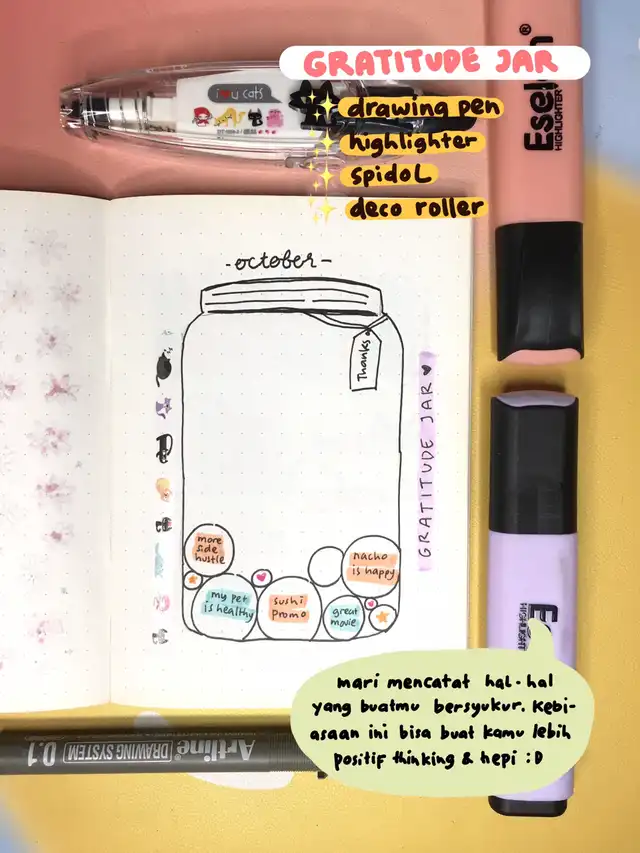 GRATITUDE JAR
i ♥ u cats
drawing pen
highlighter
spidol
deco roller
HIGHLIGHTER
-october-
Thanks
GRATITUDE JAR ♥
more
side
hustle
nacho
is happy
my pet
is healthy
sushi
promo
great
movie
HIGHLIGHTER
mari mencatat hal-hal
yang buatmu bersyukur. Kebi-
asaan ini bisa buat kamu lebih
positif thinking & hepi :D
Artline® DRAWING SYSTEM 0.1